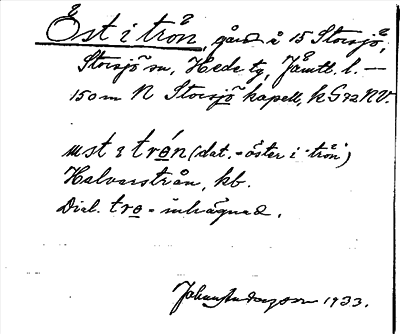 Öst i trån, gård å 15 Storsjö,
Storsjö sn, Hede tg, Jämtl. l. —
150 m N Storsjö kapell, k G 72 NV.
ust i trón (dat. = öster i "trön")
Halvarstrån, kb.
Dial. tro = inhägnad.
1933.